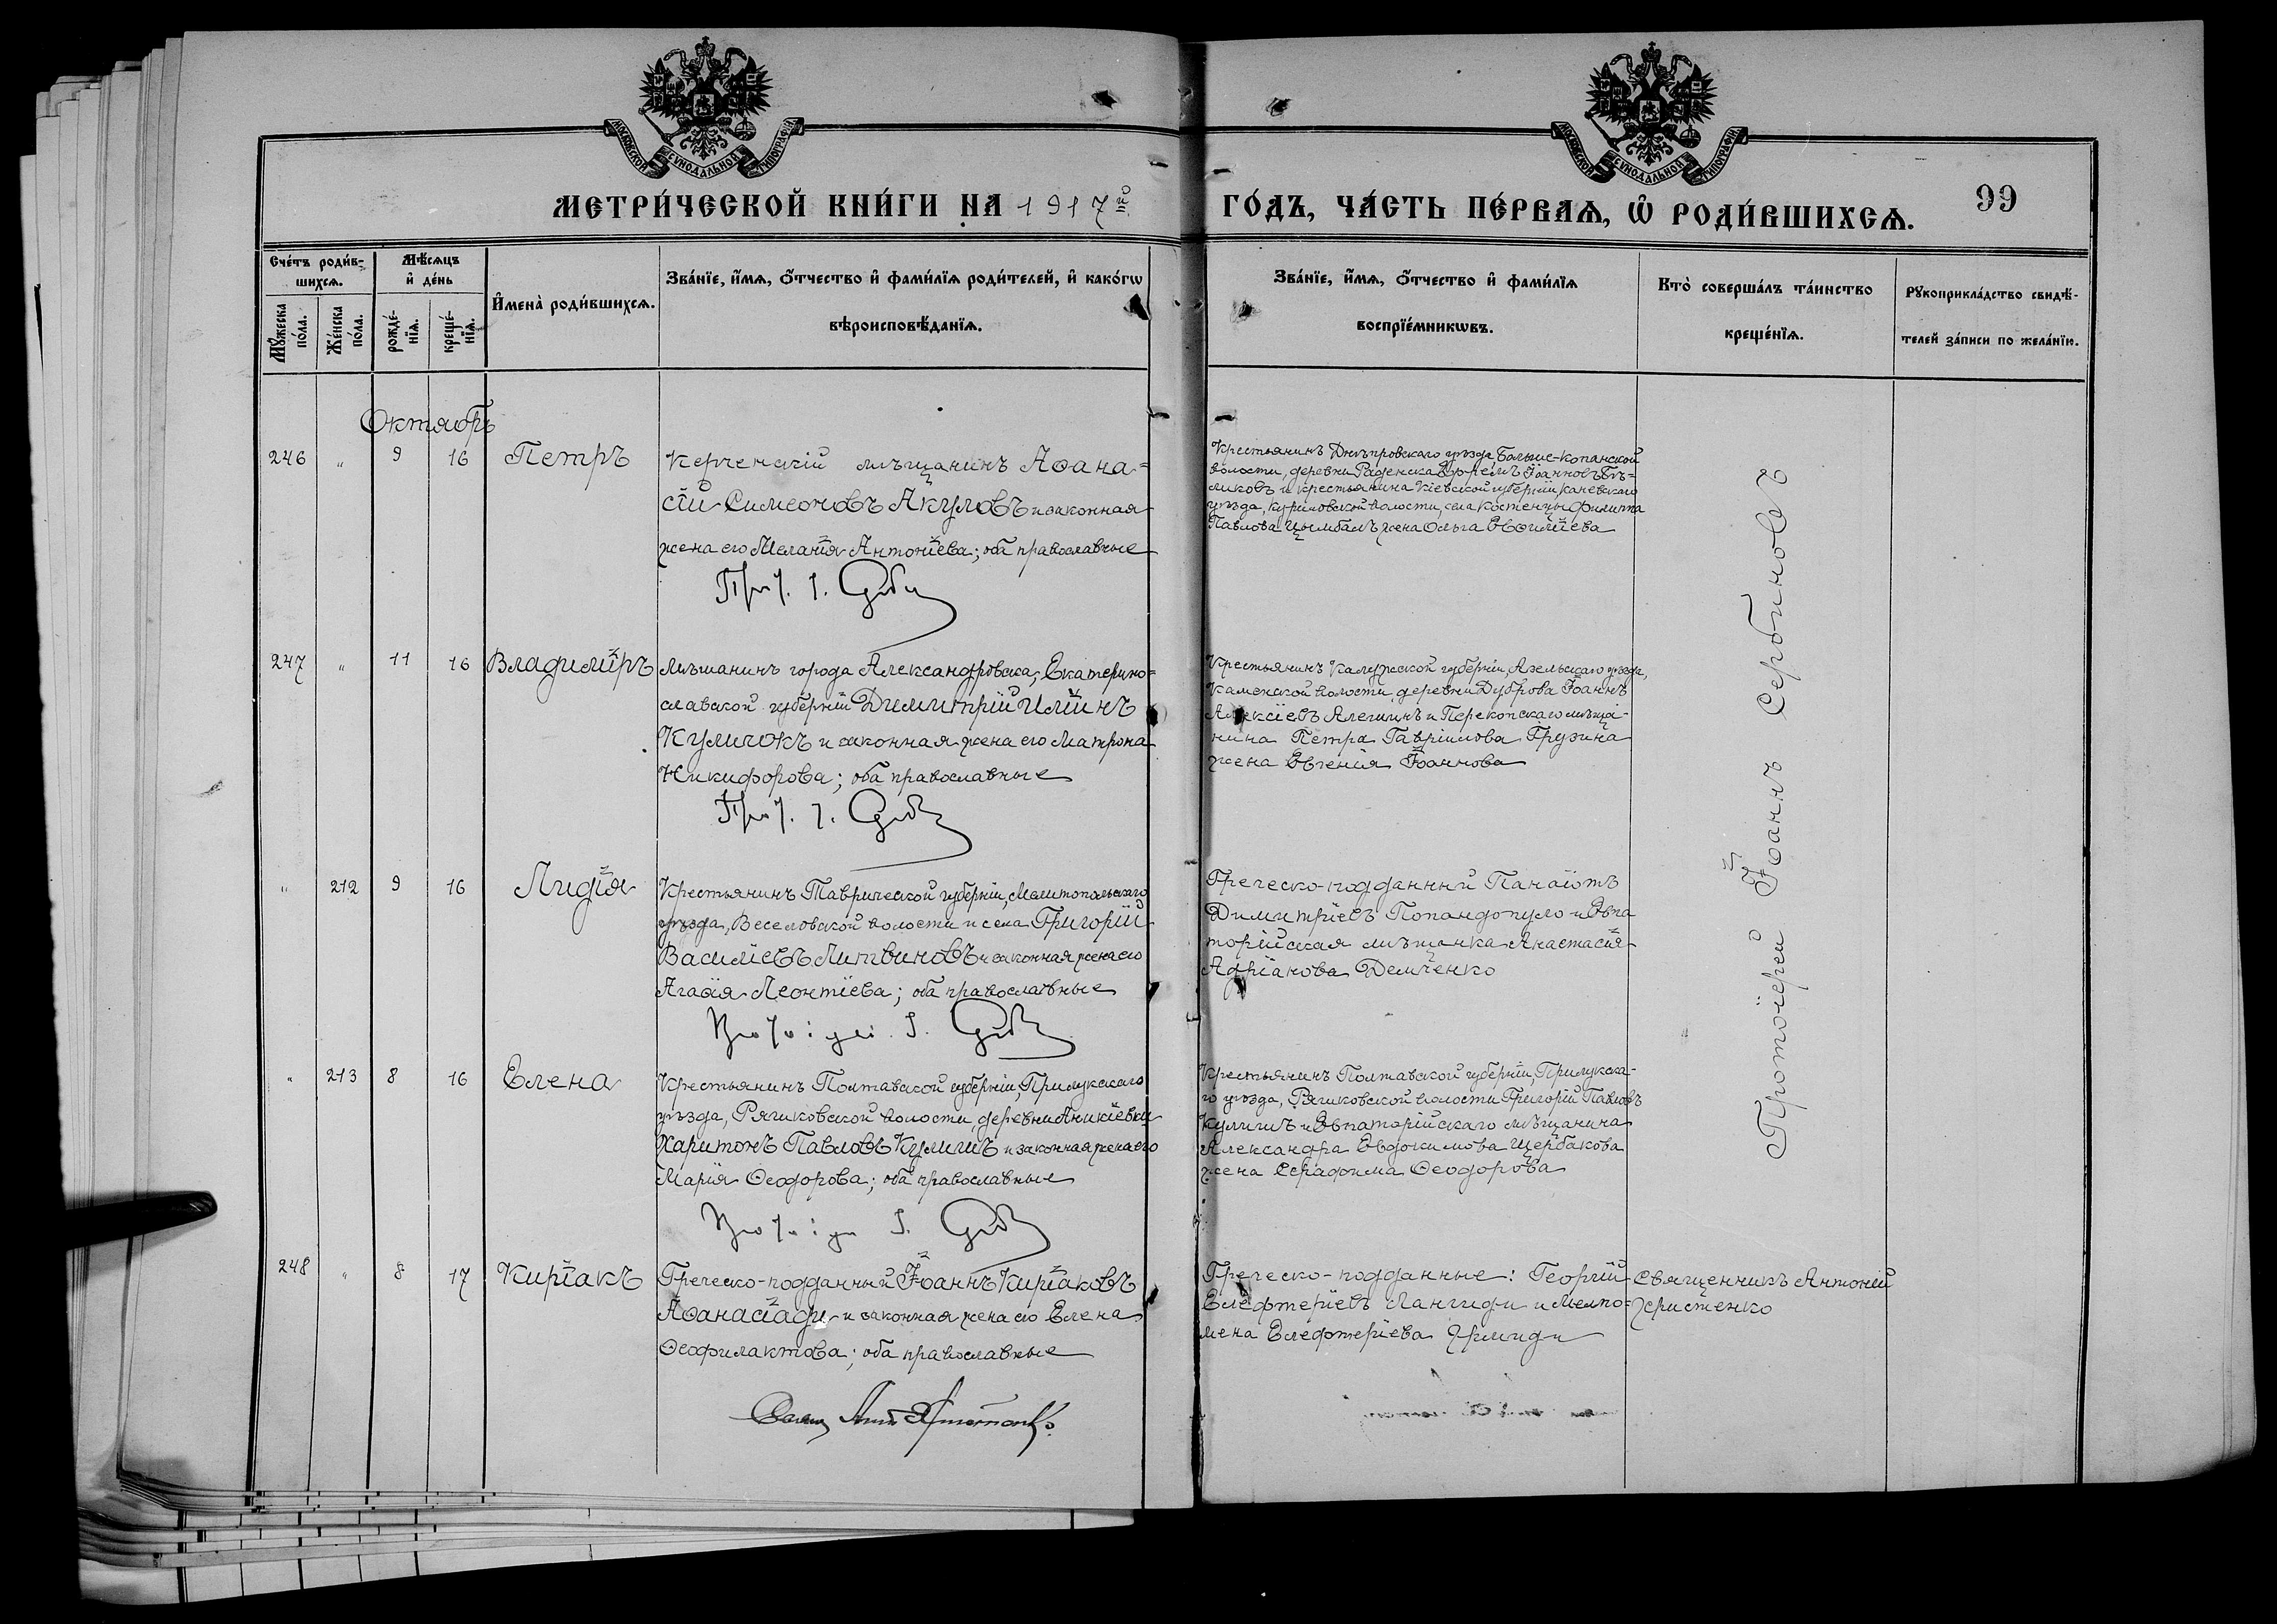 МОСКОВСКОЙ СѴНОДАЛЬНОЙ ТИПОГРАФІИ
МОСКОВСКОЙ СѴНОДАЛЬНОЙ ТИПОГРАФІИ
МЕТРИ́ЧЕСКОЙ КНИ́ГИ НА 1917й
ГО́ДЪ, ЧА́СТЬ ПЕ́РВАѦ, Ѽ РОДИ́ВШИХСѦ.
99
Счéтъ роди́в-
шихсѧ.
Мꙋ́жеска
по́ла.
Же́нска
по́ла.
Мѣ́сѧцъ
и҆ де́нь
рожде́-
нїѧ.
креще́-
нїѧ.
И҆мена̀ роди́вшихсѧ.
Зва́нїе, и҆́мѧ, ѻ҆́тчество и҆ фами́лїѧ роди́телей, и҆ како́гѡ
вѣроисповѣ́данїѧ.
Зва́нїе, и҆́мѧ, ѻ҆́тчество и҆ фами́лїѧ
воспрїе́мникѡвъ.
Кто̀ соверша́лъ та́инство
креще́нїѧ.
Рꙋкоприкла́дство свидѣ́-
телей за́писи по жела́нїю.
Октябрь
246 " 9 16 Петръ
Керченскій мѣщанинъ Аѳана=
сій Симеоновъ Акуловъ и законная
жена его Меланія Антоніева; оба православные
Прот. І. Серб
Крестьянинъ Днѣпровскаго уѣзда, Больше-Копанской
волости, деревни Раденска Ефремъ Іоанновъ Бѣ=
ликовъ и крестьянина Кіевской губерніи, Каневскаго
уѣзда, Куриловской волости, села Костенцы Филиппа
Павлова Цымбалъ жена Ольга Евфиміева
247 " 11 16 Владиміръ
Мѣщанинъ города Александровска, Екатерино=
славской губерніи Димитрій Иліинъ
Куличокъ и законная жена его Матрона
Никифорова; оба православные
Прот. І. Серб
Крестьянинъ Калужской губерніи, уѣзда,
Каменской волости, деревни Дуброва Іоаннъ
Алексіевъ Алешинъ и Перекопскаго мѣща-
нина Петра Гавріилова Грузина
жена Евгенія Іоаннова
" 212 9 16 Лидія
Крестьянинъ Таврической губерніи, Мелитопольскаго
уѣзда, Веселовской волости и села Григорій
Василіевъ Литвиновъ и законная жена его
Агаѳія Леонтіева; оба православные
Протоіерей І. Серб
Греческо-подданный Панаіотъ
Димитріевъ Попандопуло и Евпа
торійская мѣщанка Анастасія
Адріанова Демченко
" 213 8 16 Елена
Крестьянинъ Полтавской губерніи, Прилукскаго
уѣзда, Ряшковской волости, деревни Аникіевки
Харитонъ Павловъ Кулишъ и законная жена его
Марія Ѳеодорова; оба православные
Протоіерей І. Серб
Крестьянинъ Полтавской губерніи, Прилукска-
го уѣзда, Ряшковской волости Григорій Павловъ
Кулишъ и Евпаторійскаго мѣщанина
Александра Евдокимова Щербакова
жена Серафима Ѳеодорова
Протоіерей Іоаннъ Сербиновъ
248 " 8 17 Киріакъ
Греческо-подданный Іоаннъ Киріаковъ
Аѳанасіади и законная жена его Елена
Ѳеофилактова; оба православные
Свящ. Ант. Христенко.
Греческо-подданные: Георгій
Елефтеріевъ Лангиди и Мелпо=
мена Елефтеріева
Священникъ Антоній
Христенко